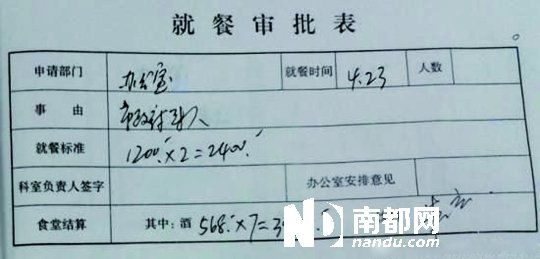 就餐审批表
申请部门 办公室 就餐时间 4.23 人数
事由
就餐标准 1200×2=2400
科室负责人签字 办公室安排意见
食堂结算 其中:酒 568×7=3
南都网
nandu.com